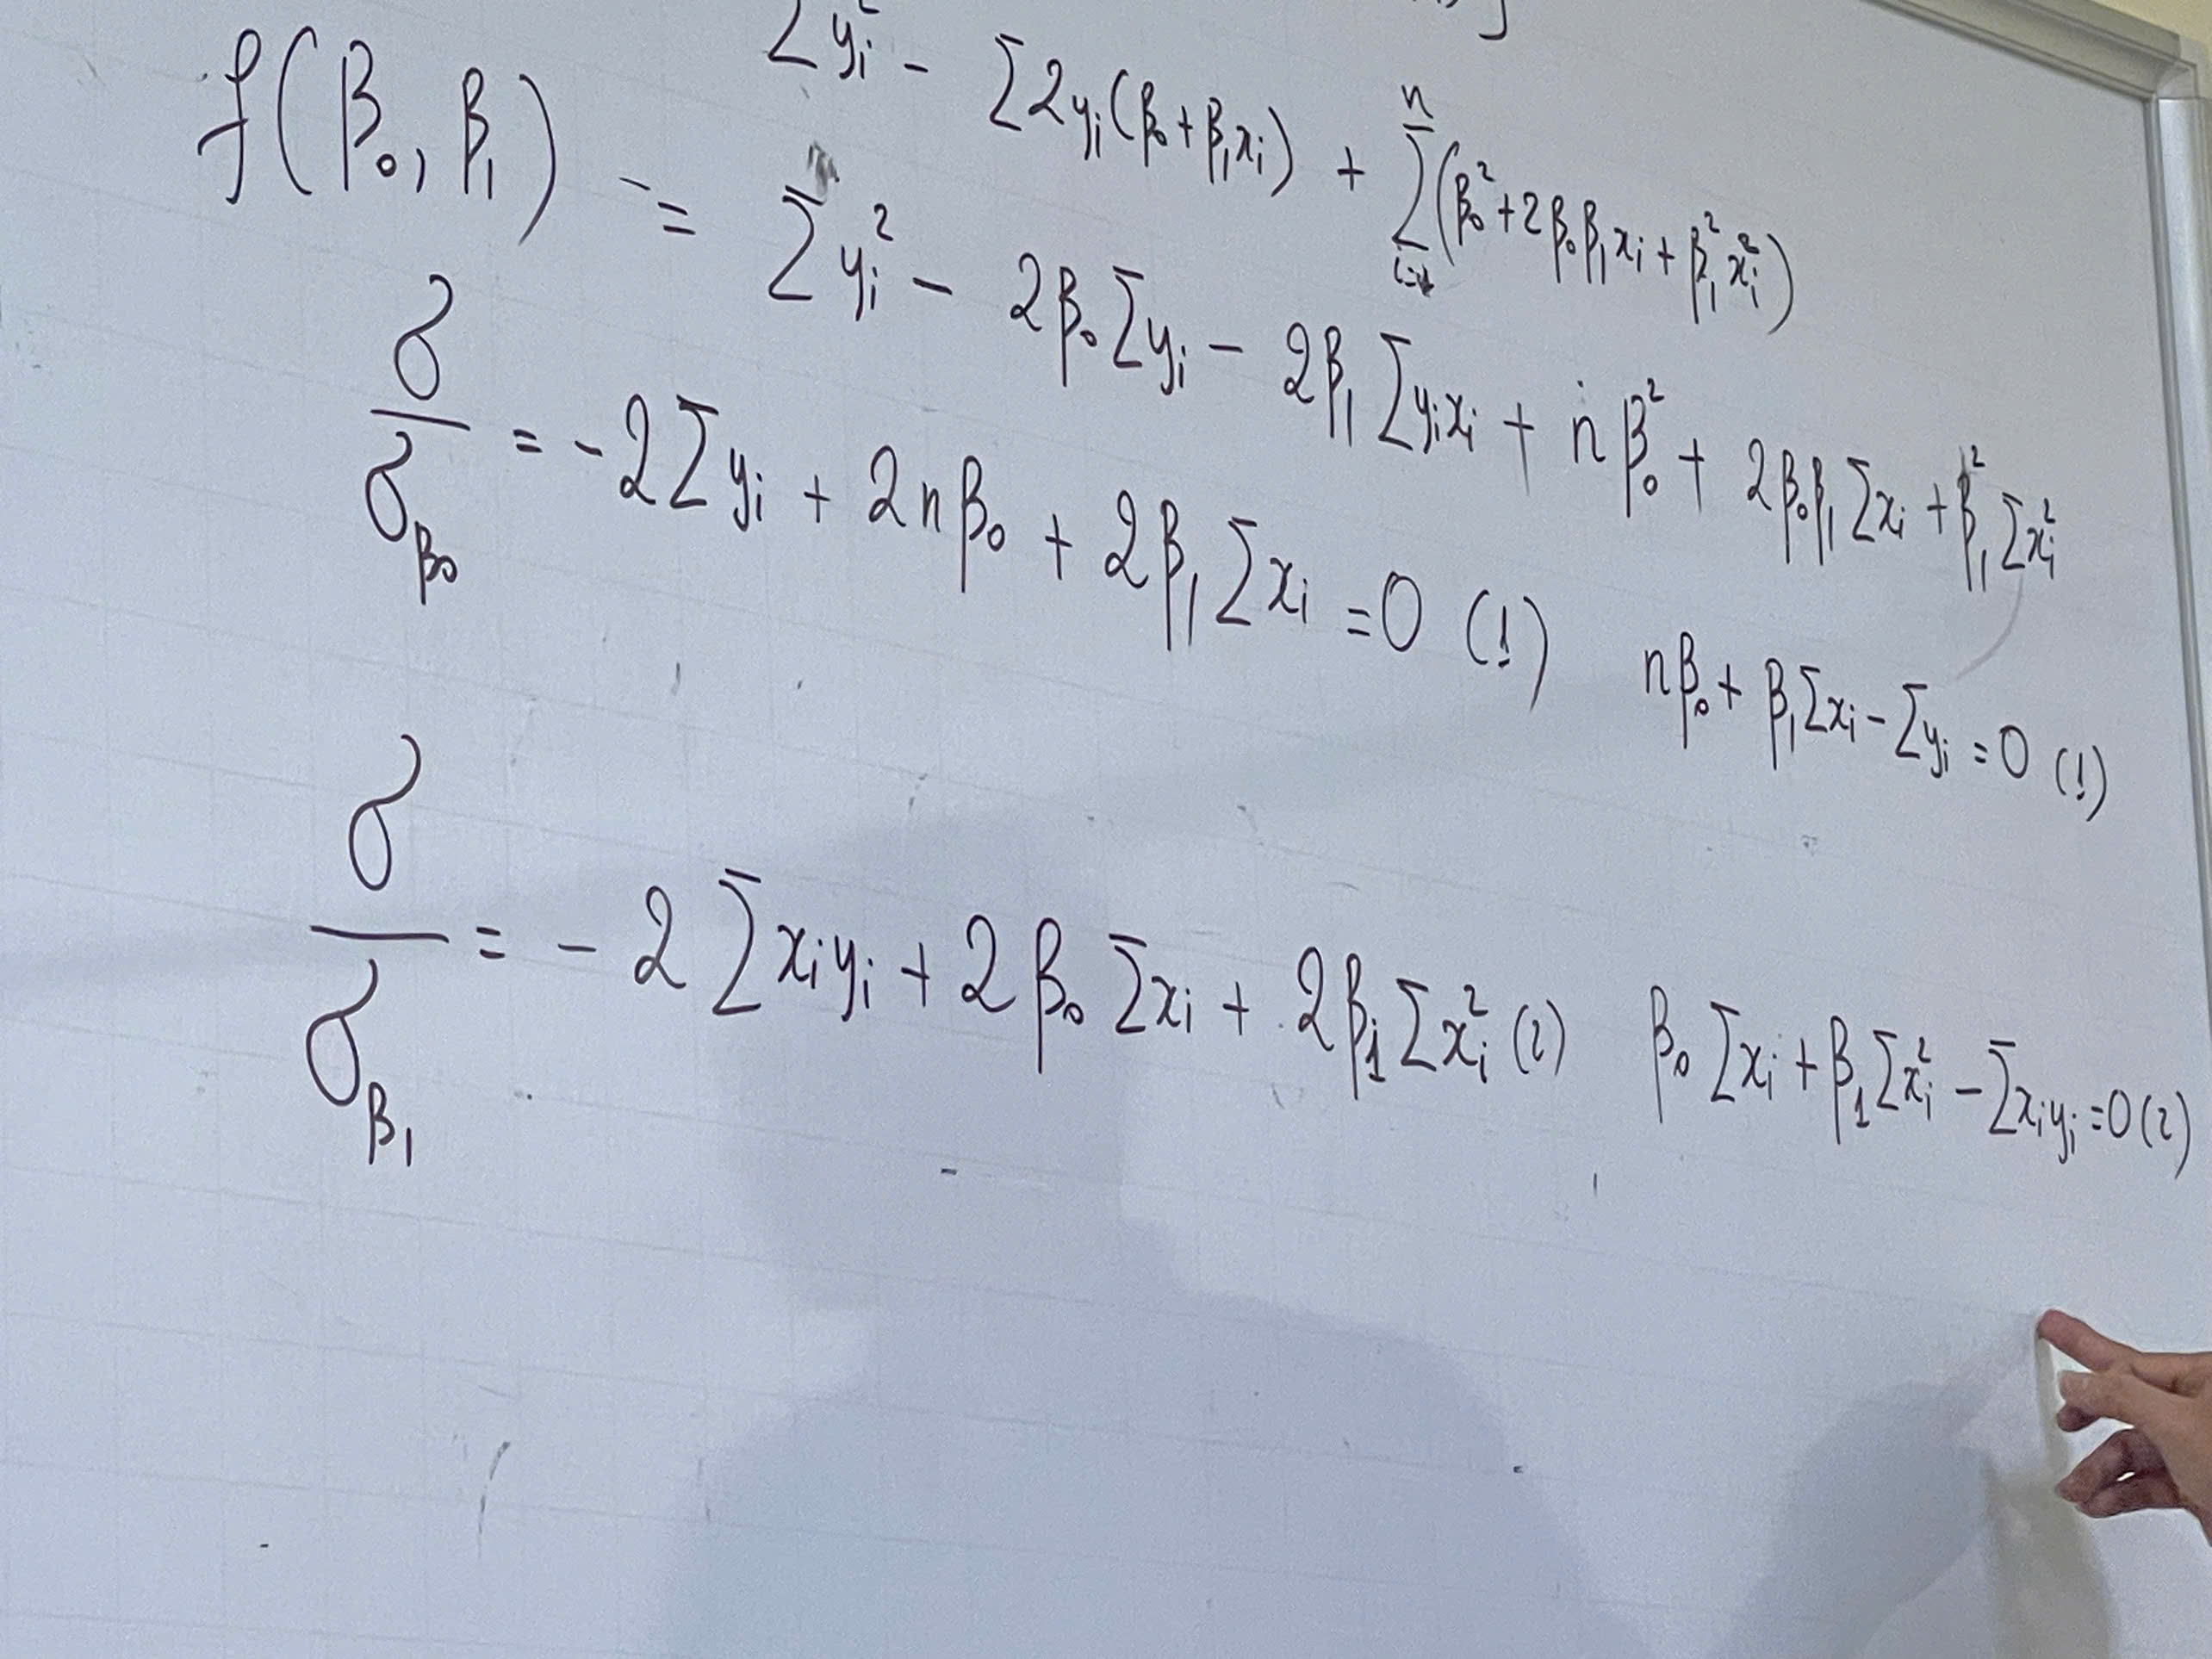 ∑ yᵢ² - ∑ 2yᵢ(β₀ + β₁xᵢ) + ∑ⁿᵢ₌₁ (β₀² + 2β₀β₁xᵢ + β₁²xᵢ²)
f(β₀, β₁) = ∑ yᵢ² - 2β₀ ∑ yᵢ - 2β₁ ∑ yᵢxᵢ + nβ₀² + 2β₀β₁ ∑ xᵢ + β₁² ∑ xᵢ²
∂/∂β₀ = -2 ∑ yᵢ + 2nβ₀ + 2β₁ ∑ xᵢ = 0 (1)
nβ₀ + β₁ ∑ xᵢ - ∑ yᵢ = 0 (1)
∂/∂β₁ = - 2 ∑ xᵢyᵢ + 2β₀ ∑ xᵢ + 2β₁ ∑ xᵢ² (2)
β₀ ∑ xᵢ + β₁ ∑ xᵢ² - ∑ xᵢyᵢ = 0 (2)